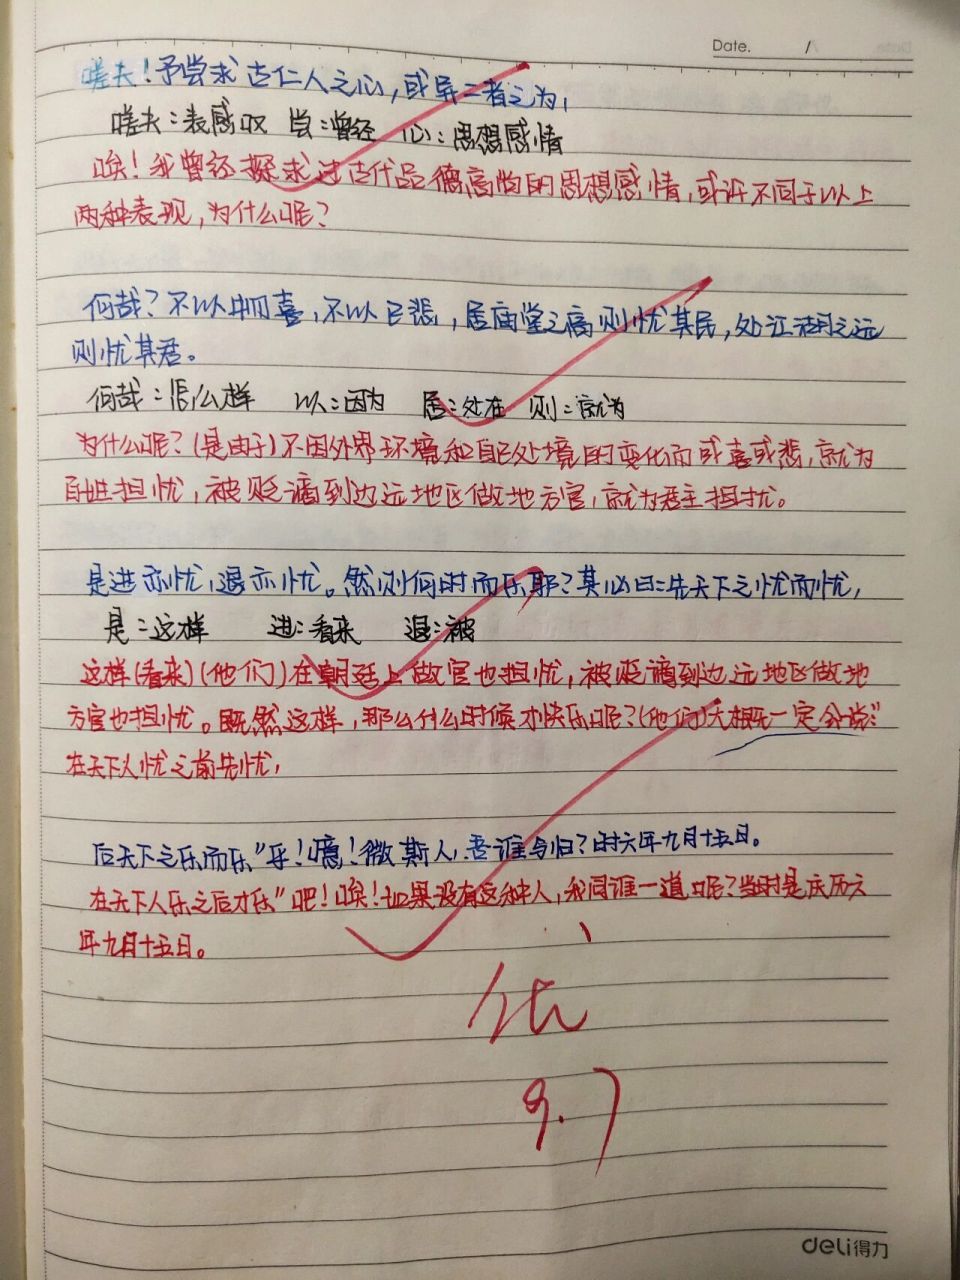 Date. /
嗟夫！予尝求古仁人之心，或异二者之为，
嗟夫：表感叹 尝：曾经 心：思想感情
唉！我曾经探求过古代品德高尚的思想感情，或许不同于以上
两种表现，为什么呢？
何哉？不以物喜，不以己悲，居庙堂之高则忧其民，处江湖之远
则忧其君。
何哉：怎么样 以：因为 居：处在 则：就为
为什么呢？（是由于）不因外界环境和自己处境的变化而或喜或悲，就为
百姓担忧，被贬谪到边远地区做地方官，就为君主担忧。
是进亦忧，退亦忧。然则何时而乐耶？其必曰：先天下之忧而忧，
是：这样 进：看来 退：被
这样（看来）（他们）在朝廷上做官也担忧，被贬谪到边远地区做地
方官也担忧。既然这样，那么什么时候才快乐呢？（他们）大概一定会说：“
在天下人忧之前先忧，
后天下之乐而乐”乎！噫！微斯人，吾谁与归？时六年九月十五日。
在天下人乐之后才乐”吧！唉！如果没有这种人，我同谁一道呢？当时是庆历六
年九月十五日。
优
9.7
deli得力